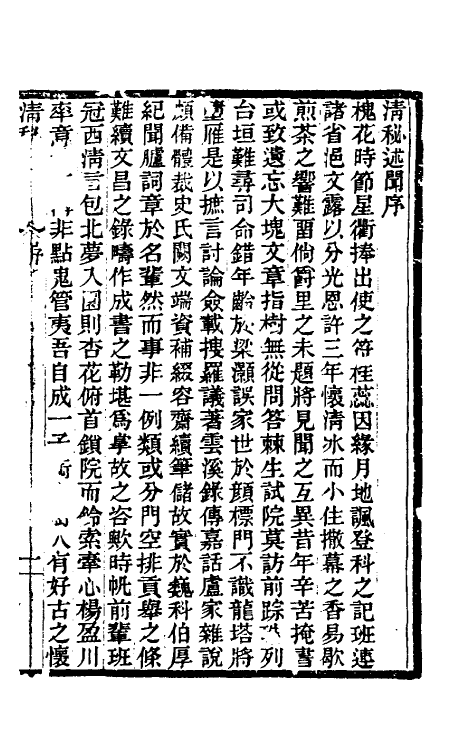 清秘述聞序
槐花時節星衢捧出使之符桂蕊因緣月地諷登科之記班連
諸省浥文露以分光恩許三年懷清冰而小住撤幕之香易歇
煎茶之響難留倘爵里之未題將見聞之互異昔年辛苦掩書
或致遺忘大塊文章指樹無從問答棘生試院莫訪前踪 列
台垣難尋司命錯年齡於梁灝誤家世於顔標門不識龍塔將
雁是以摭言討論僉載搜羅議著雲溪錄傳嘉話盧家雜說
頗備體裁史氏闕文端資補綴容齋續筆儲故實於巍科伯厚
紀聞臚詞章於名輩然而事非一例類或分門空排貢舉之條
難續文昌之錄疇作成書之勒堪爲掌故之咨歟時帆前輩班
冠西清言包北夢入園則杏花俯首鎖院而鈴索牽心楊盈川
率意 非點鬼管夷吾自成一 八有好古之懷
清秘 序 一